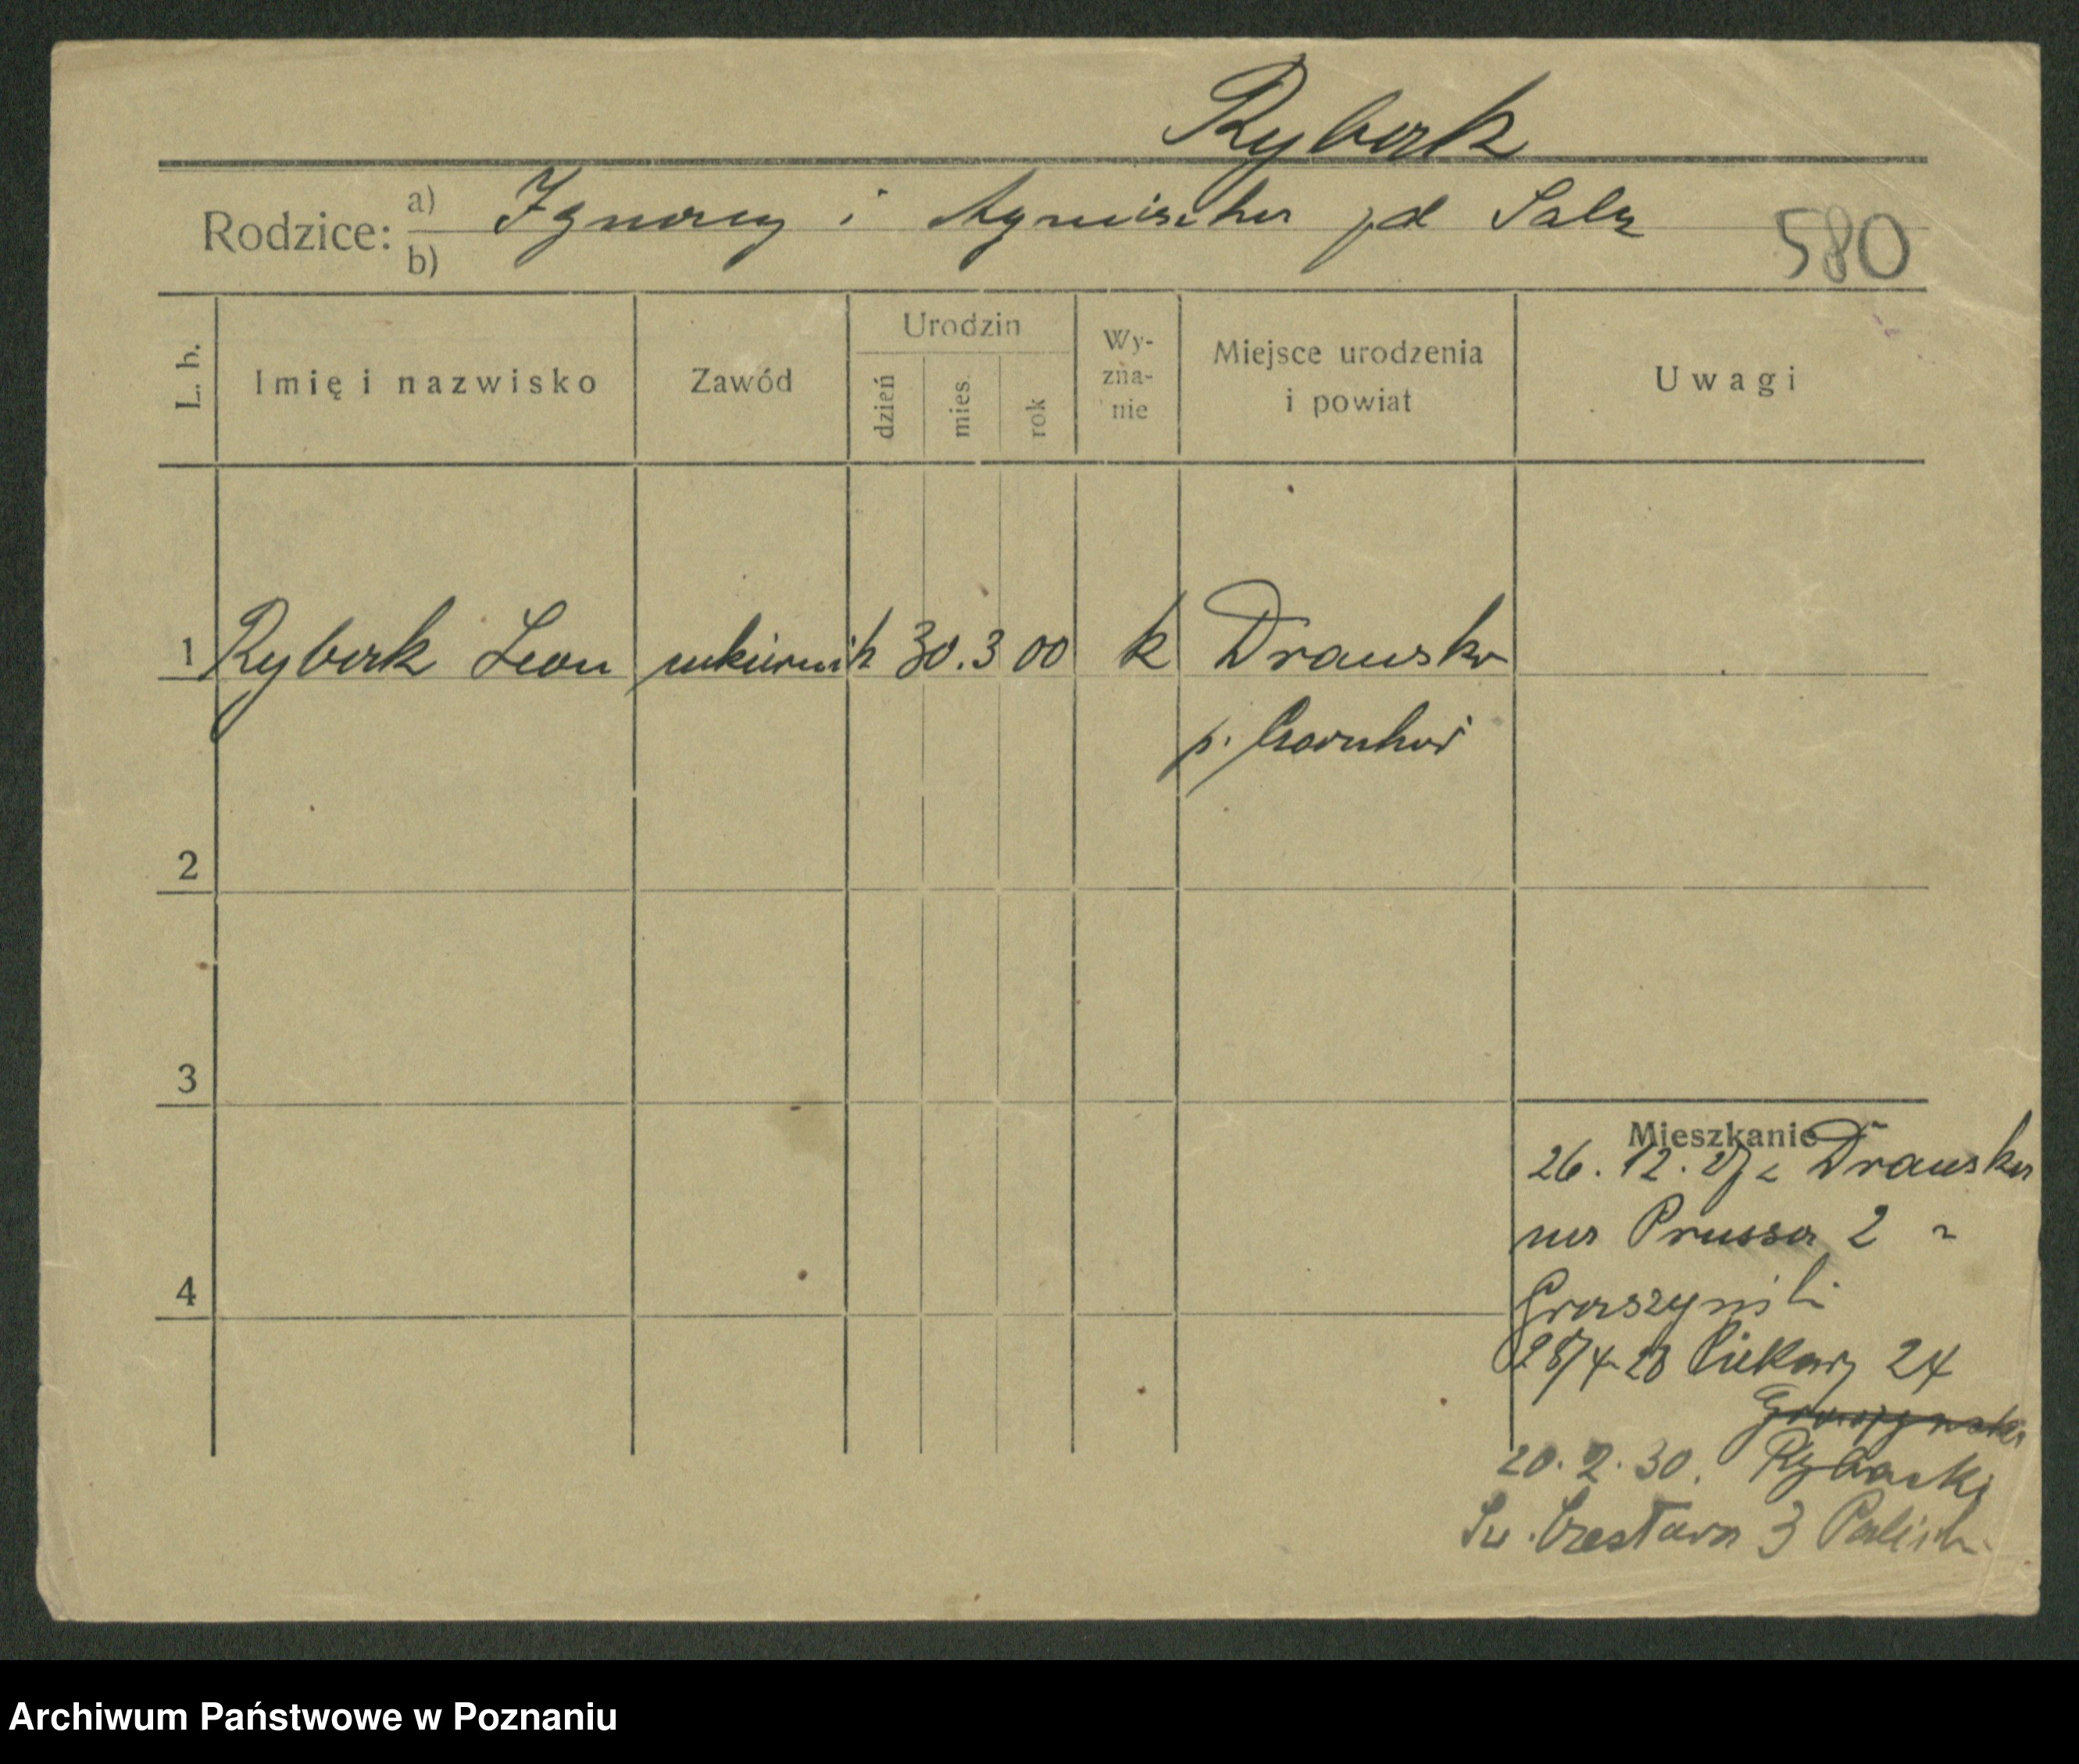 Rybak
Rodzice: a) Ignacy i Agnieszka zd Salz
b)
580
L. b.
Imię i nazwisko
Zawód
Urodzin
dzień
mies.
rok
Wy-
zna-
nie
Miejsce urodzenia
i powiat
Uwagi
1 Rybak Leon cukiernik 30. 3 00 k Drawsko
p. Czarnków
2
3
4
Mieszkanie
26. 12. 27 z Drawska
na Prussa 2
Graszyński
28/4 28 Piekary 24
Graszyński
20. 2. 30. Rybacki
Św. Czesława 3
Archiwum Państwowe w Poznaniu